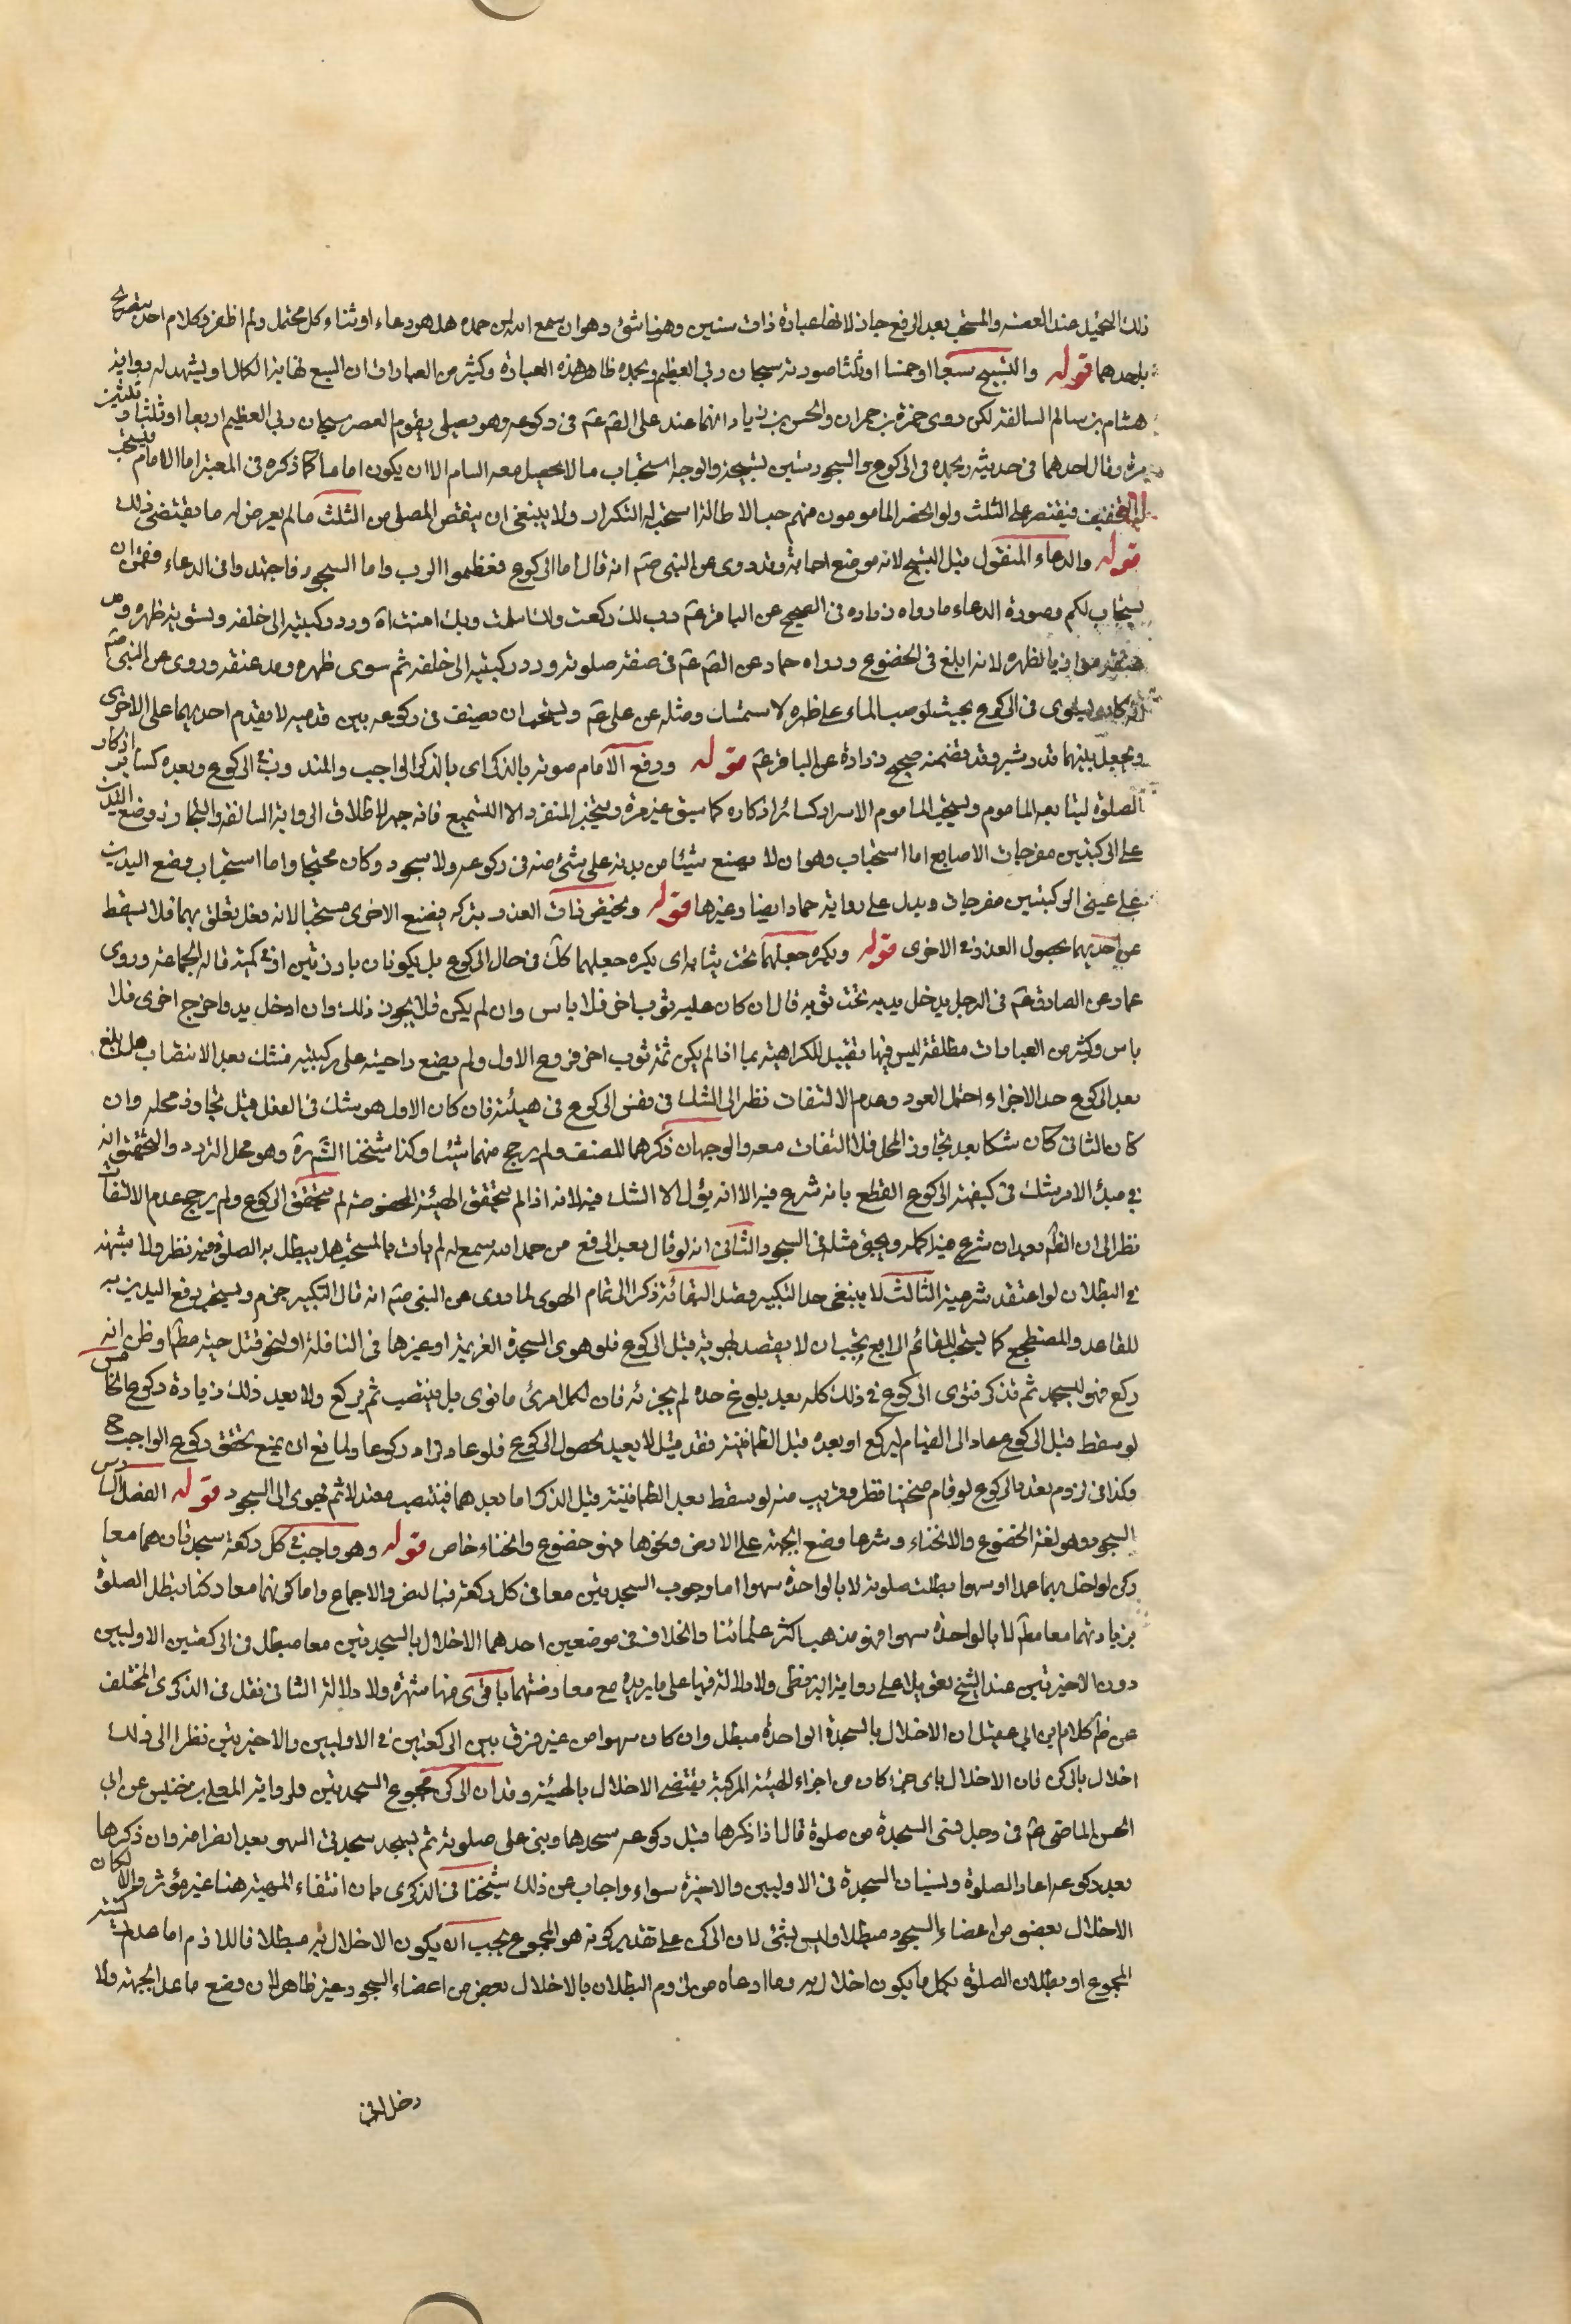 ذلك التحميد عند العطسة والمستحب بعد الرفع جاز لانها عبادة ذات سنين وهنا شئ وهو ان سمع الله لمن حمده هل هو دعاء او ثناء كل محتمل ولم اظفر في كلام احد بتصريح
باحدهما قوله والتسبيح سبعا او خمسا او ثلثا صورته سبحان ربي العظيم وبحمده ظاهر هذه العبارة وكثير من العبارات ان السبع نهاية الكمال ويشهد له رواية
هشام بن سالم السالفة لكن روى حمزة بن حمران والحسن بن زياد انهما عدا على الصم عم في ركوعه وهو يصلي بقوم العصر سبحان ربي العظيم اربعا او ثلثا وثلثين
مرة وقال احدهما في حديثه وبحمده في الركوع والسجود ستين تسبيحة والوجه استحباب ما لا يحصل معه السام الا ان يكون اماما كما ذكره في المعتبر اما الامام فيستحب
له التخفيف فيقتصر على الثلث ولو انحصر المامومون منهم حب الاطالة استحب له التكرار ولا ينبغي ان ينقص المصلي من الثلث مالم يعرض له ما يقتضي ذلك
قوله والدعاء المنقول قبل التسبيح لانه موضع اجابة وقد روى عن النبي صم انه قال اما الركوع فعظموا الرب واما السجود فاجتهدوا في الدعاء فقمن ان
يستجاب لكم وصورة الدعاء ما رواه زرارة في الصحيح عن الباقر عم رب لك ركعت ولك اسلمت وبك امنت اه ورد ركبتيه الى خلفه وتسوية ظهره ومد
عنقه موازيا لظهره لانه ابلغ في الخضوع ورواه حماد عن الصم عم في صفة صلوته ورد ركبتيه الى خلفه ثم سوى ظهره ومد عنقه وروى عن النبي صم
انه كان يستوى في الركوع بحيث لو صب الماء على ظهره لاستمسك ومثله عن علي عم ويستحب ان يصف في ركوعه بين قدميه لا يقدم احديهما على الاخرى
ويجعل بينهما قدر شبر وقد تضمنه صحيح زرارة عن الباقر عم قوله ورفع الامام صوته بالذكر اى بالذكر الواجب والمندوب في الركوع وبعده كساير اذكار
الصلوة ليتابعه الماموم ويستحب للماموم الاسرار كسائر اذكاره كما سبق غير مرة ويتخير المنفرد الا التسميع فانه جهر لاطلاق الرواية السالفة والتجافي ووضع اليدين
على الركبتين مفرجات الاصابع اما استحباب وهو ان لا يضع شيئا من بدنه على شئ منه في ركوعه ولا سجود وكان مجنحا واما استحباب وضع اليدين
على عيني الركبتين مفرجات ويدل على رواية حماد ايضا وغيرها قوله ويختص ذات العذر بتركه فيضع الاخرى مستحبا لانه فعل تعلق بهما فلا يسقط
عن احديهما بحصول العذر في الاخرى قوله ويكره جعلهما تحت ثيابه اى يكره جعلهما كك في حال الركوع بل يكونان بارزتين او في كمية قاله الجماعة وروى
عمار عن الصادق عم في الرجل يدخل يديه تحت ثوبه قال ان كان عليه ثوب اخر فلا باس وان لم يكن فلا يجوز ذلك وان ادخل يد واخرج اخرى فلا
باس وكثير من العبارات مطلقة ليس فيها تقييد للكراهية بما اذا لم يكن ثمة ثوب اخر فروع الاول ولم يضع راحتيه على ركبتيه فشك بعد الانتصاب هل بلغ
بعد الركوع حد الاجزاء احتمل العود وعدم الالتفات نظر الى الشك في نفس الركوع في هيئته فان كان الاول هو شك في الفعل قبل تجاوز محله وان
كان الثاني كان شكا بعد تجاوز المحل فلا التفات معه والوجهان ذكرهما المصنف ولم يرجح منهما شيئا وكذا شيخنا الشهرة وهو محل التردد والتحقيق انه
في مبدا الامر يشك في كيفية الركوع القطع بانه شرع فيه الا انه يؤل الا الشك فيه لانه اذا لم يتحقق الهيئة المخصوصة لم يتحقق الركوع ولم يرجح عدم الالتفات
نظر الى ان الظم بعد ان شرع فيه اكمله ويجئ مثله في السجود الثاني انه لو قال بعد الرفع من حمد الله سمع له لم يات بالمستحب هل يبطل به الصلوة فيه نظر ولا شبهة
في البطلان لو اعتقد شرعيته الثالث لا ينبغي مد التكبير قصد البقائه ذكرا الى تمام الهوى لما روى عن النبي صم انه قال التكبير جزم ويستحب رفع اليدين به
للقاعد والمضطجع كما يستحب للقائم الرابع يجب ان لا يقصد بهويه قبل الركوع فلو هوى السجدة العزيمة او غيرها في النافلة او لنحو قتل حية مطم او ظن انه
ركع فهو ليسجد ثم تذكر فنوى الركوع في ذلك كله بعد بلوغ حده لم يجزئه فان لكل امرئ ما نوى بل ينتصب ثم يركع ولا يعد ذلك زيادة ركوع الخامس
لو سقط قبل الركوع عاد الى القيام ليركع او بعده قبل الطمانينة فقد قيل لا يعيد لحصول الركوع فلو عاد زاد ركوعا ولمانع ان يمنع تحقق ركوع الواجب ح
وكذا في لزوم تعدد الركوع لو قام منحنيا فنظر وقريب منه لو سقط بعد الطمانينة قبل الذكر اما بعدهما فينتصب معتدلا ثم يهوى الى السجود قوله الفصل السادس
السجود وهو لغة الخضوع والانحناء وشرعا وضع الجبهة على الارض ونحوها فهو خضوع وانحناء خاص قوله وهو واجب في كل ركعة سجدتان هما معا
ركن لو اخل بهما عمدا او سهوا بطلت صلوته لا بالواحدة سهوا اما وجوب السجدتين معا في كل ركعة فبالنص والاجماع واما كونهما معا ركنا تبطل الصلوة
بزيادتهما معا مطم لا بالواحدة سهوا فهو مذهب اكثر علمائنا والخلاف في موضعين احدهما الاخلال بالسجدتين معا مبطل في الركعتين الاوليين
دون الاخيرتين عند الشيخ تعويلا على رواية البزنطي ولا دلالة فيها على ما يريده مع معارضتهما باقوى منها شهرة ولا دلالة الثاني نقل في الذكرى المختلف
عن ظم كلام ابن ابي عقيل ان الاخلال بالسجدة الواحدة مبطل وان كان سهوا من غير فرق بين الركعتين في الاوليين والاخيرتين نظرا الى ذلك
اخلال بالركن فان الاخلال باى جزء كان من اجزاء الهيئة المركبة يقتضي الاخلال بالهيئة وقد ان الركن مجموع السجدتين ولرواية المعلى بن خنيس عن ابي
الحسن الماضي عم في رجل نسي السجدة من صلوة قال اذا ذكرها قبل ركوعه سجدها وبنى على صلوته ثم يسجد سجدتي السهو بعد انصرافه وان ذكرها
بعد ركوعه اعاد الصلوة ونسيان السجدة في الاوليين والاخيرة سواء واجاب عن ذلك شيخنا في الذكرى بان انتفاء المهية هنا غير مؤثر والا لكان
الاخلال بعضو من اعضاء السجود مبطلا وليس بشئ لان الركن على تقدير كونه هو المجموع يجب ان يكون الاخلال به مبطلا فاللازم اما عدم ركنية
المجموع او بطلان الصلوة بكل ما يكون اخلال به وما ادعاه من لزوم البطلان بالاخلال بعض من اعضاء السجود غير ظاهر لان وضع ما عدا الجبهة ولا
دخل له في